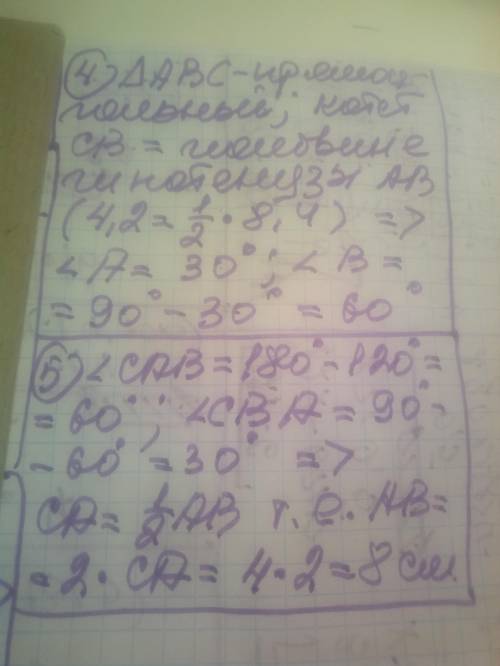 ④ ΔABC - прямоу-
гольный; катет
CB = половине
гипотенузы AB
(4,2 = 1/2 · 8,4) =>
∠A = 30°; ∠B =
= 90° - 30° = 60°
⑤ ∠CAB = 180° - 120° =
= 60°; ∠CBA = 90° -
- 60° = 30° =>
CA = 1/2 AB т.е. AB =
= 2 · CA = 4 · 2 = 8 см